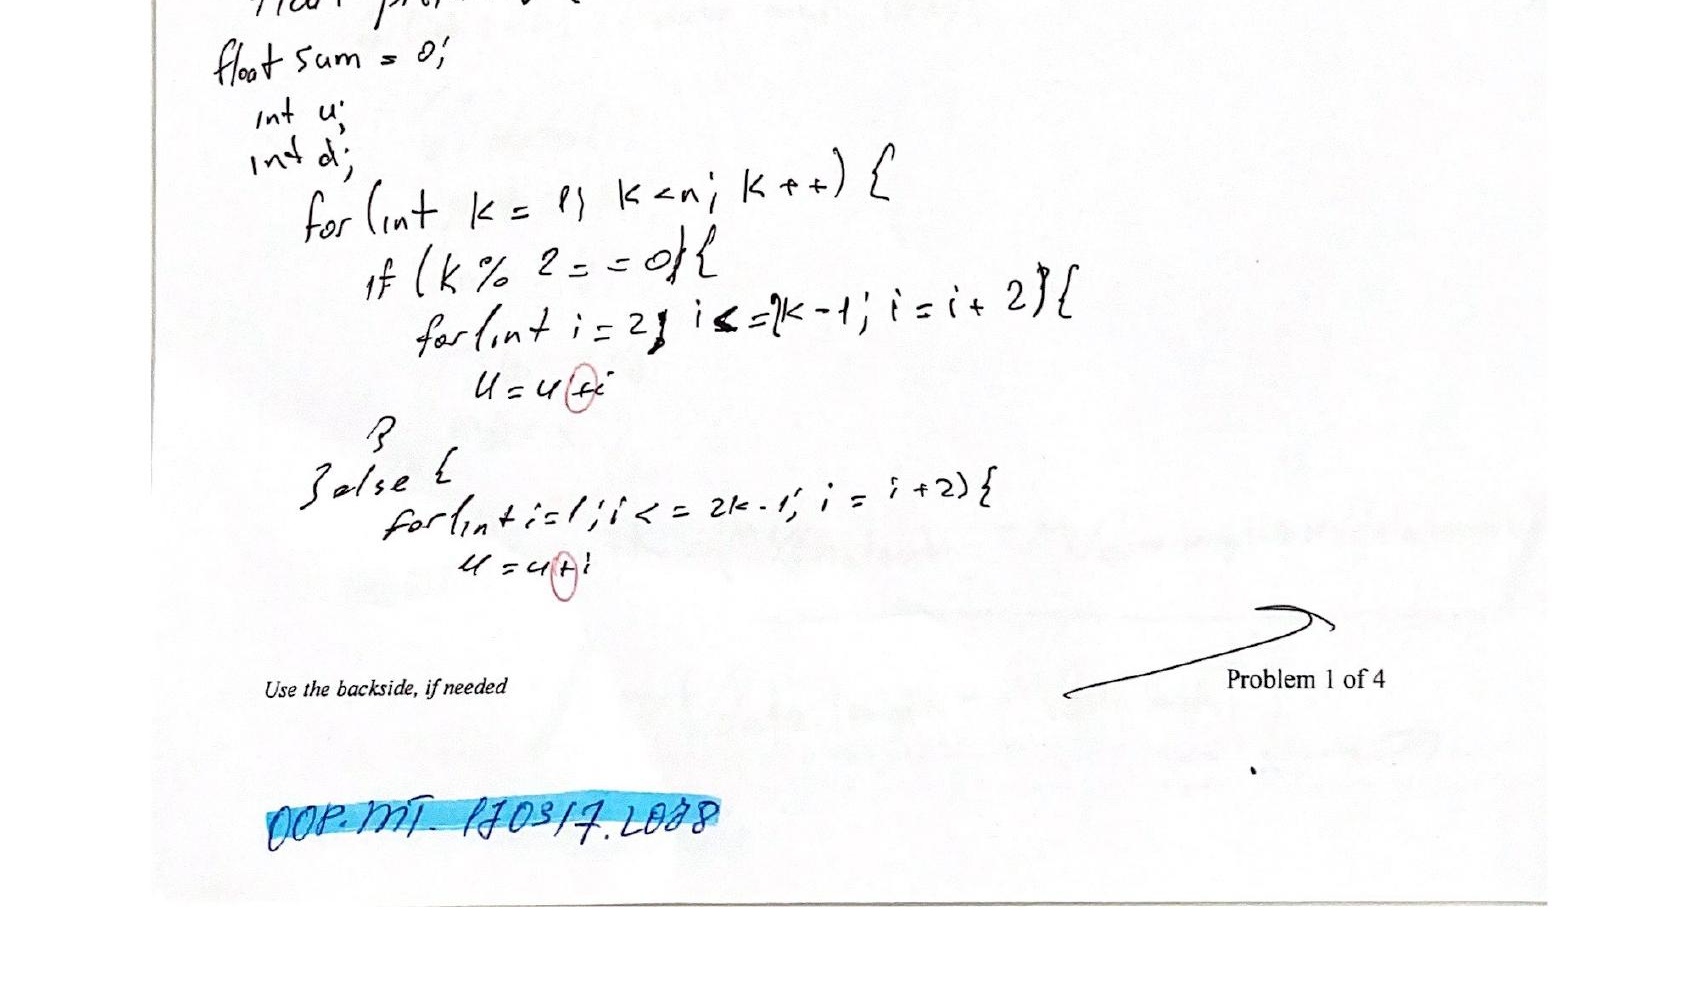 float sum = 0;
int u;
int d;
for (int k = 1; k<n; k++) {
if (k % 2 == 0) {
for (int i = 2; i <= 2k-1; i = i + 2) {
u = u + i
}
} else {
for (int i=1; i <= 2k-1; i = i+2) {
u = u + i
Use the backside, if needed
Problem 1 of 4
OOP.MT.